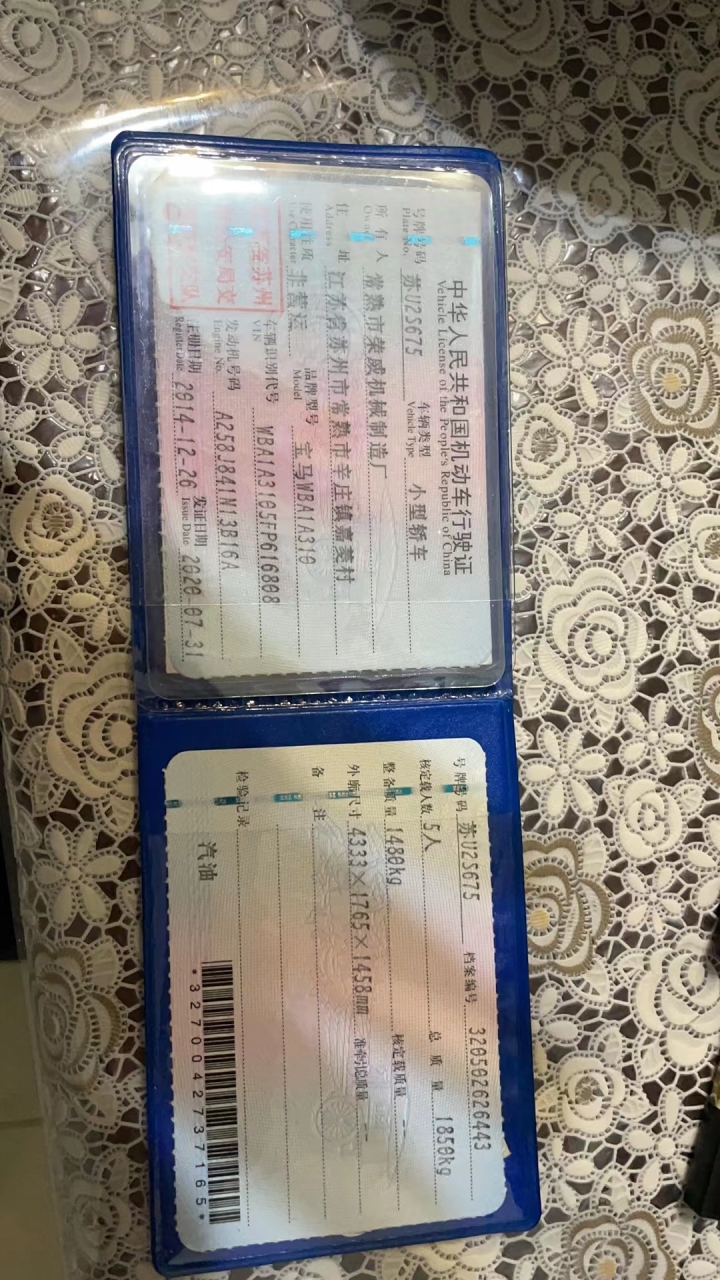 中华人民共和国机动车行驶证
Vehicle License of the People's Republic of China
号牌号码 苏U2S675 车辆类型 小型轿车
Plate No. Vehicle Type
所有人 常熟市荣威机械制造厂
住址 江苏省苏州市常熟市辛庄镇嘉菱村
Address
使用性质 非营运 品牌型号 宝马WBA1A310
Model
车辆识别代号 WBA1A3105FP616808
VIN
发动机号码 A258J841N13B16A
Engine No.
注册日期 2014-12-26 发证日期 2020-07-31
Register Date Issue Date
号牌号码 苏U2S675 档案编号 320502626443
核定载人数 5人 总质量 1850kg
整备质量 1480kg 核定载质量 --
外廓尺寸 4333×1765×1458mm 准牵引总质量 --
备注
检验记录
汽油
*3270042737165*